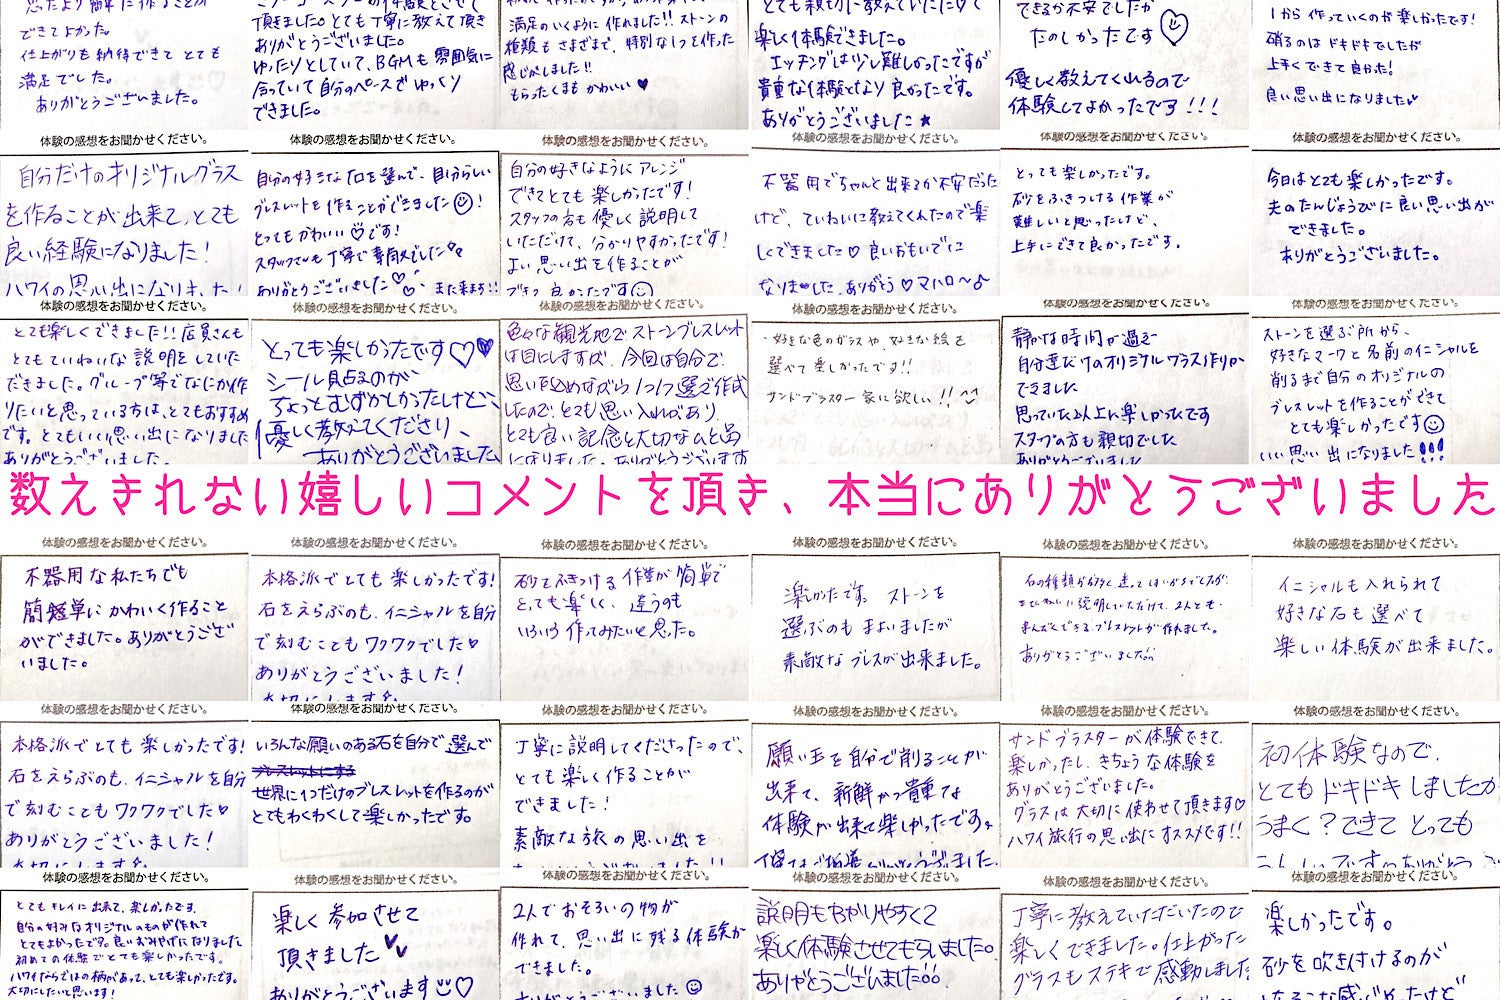 できてよかった。
仕上がりも納得できてとても
満足でした。
ありがとうございました。
頂きました。とても丁寧に教えて頂き
ありがとうございました。
ゆったりとしていて、BGMも雰囲気に
合っていて自分のペースでゆっくり
できました。
満足のいくように作れました!!ストーンの
種類もさまざまで、特別な1つを作った
感じがしました!!
もらったくまもかわいい♥
楽しく体験できました。
エッチングは少し難しかったですが
貴重な体験となり良かったです。
ありがとうございました★
できるか不安でしたが
たのしかったです
優しく教えてくれるので
体験してよかったです!!!
1から作っていくのが楽しかったです!
彫るのはドキドキでしたが
上手くできて良かった!
良い思い出になりました
体験の感想をお聞かせください。
体験の感想をお聞かせください。
体験の感想をお聞かせください。
体験の感想をお聞かせください。
体験の感想をお聞かせください。
体験の感想をお聞かせください。
自分だけのオリジナルグラス
を作ることが出来て、とても
良い経験になりました!
ハワイの思い出になりました!
自分の好きな石を選んで、自分らしい
ブレスレットを作ることができました!
とってもかわいい♡です!
スタッフさんも丁寧で素敵でした
ありがとうございました♡また来ます!!
自分の好きなようにアレンジ
できてとても楽しかったです!
スタッフの方も優しく説明して
いただけて、分かりやすかったです!
よい思い出を作ることが
できて良かったです
不器用でちゃんと出来るか不安だった
けど、ていねいに教えてくれたので楽
しくできました♡良いおもいでに
なりました。ありがとう♡マハロ〜♪
とっても楽しかったです。
砂をふきつける作業が
難しいと思ったけど、
上手にできて良かったです。
今日はとても楽しかったです。
夫のたんじょうびに良い思い出が
できました。
ありがとうございました。
体験の感想をお聞かせください。
体験の感想をお聞かせください。
体験の感想をお聞かせください。
体験の感想をお聞かせください。
体験の感想をお聞かせください。
体験の感想をお聞かせください。
とても楽しくできました!!店員さんも
とてもていねいな説明をしていた
だきました。グループ等でなにか作
りたいと思っている方は、とてもおすすめ
です。とてもいい思い出になりました
ありがとうございました。
とっても楽しかったです♡♥
シール貼るのが
ちょっとむずかしかったけど、
優しく教えてくださり、
ありがとうございました
色々な観光地でストーンブレスレット
は目にしますが、今回は自分で
思いを込めながら1つ1つ選んで作成
したので、とても思い入れがあり、
とても良い記念と大切なひと品
になりました。ありがとうございます
・好きな色のガラスや、好きな絵を
選べて楽しかったです!!
サンドブラスター家に欲しい!!^^
静かな時間が過ぎ
自分達だけのオリジナルグラス作りが
できました
思っていた以上に楽しかったです
スタッフの方も親切でした
ありがとうございました
ストーンを選ぶ所から、
好きなマークと名前のイニシャルを
削るまで自分のオリジナルの
ブレスレットを作ることができて
とても楽しかったです
いい思い出になりました!!!
数えきれない嬉しいコメントを頂き、本当にありがとうございました
体験の感想をお聞かせください。
体験の感想をお聞かせください。
体験の感想をお聞かせください。
体験の感想をお聞かせください。
体験の感想をお聞かせください。
体験の感想をお聞かせください。
不器用な私たちでも
簡単にかわいく作ること
ができました。ありがとうござ
いました。
本格派でとても楽しかったです!
石をえらぶのも、イニシャルを自分
で刻むこともワクワクでした♥
ありがとうございました!
大切にします
砂をふきつける作業が簡単で
とっても楽しく、違うのも
いろいろ作ってみたいと思った。
楽しかったです。ストーンを
選ぶのもまよいましたが
素敵なブレスが出来ました。
ていねいに説明していただけて、2人とも
まんぞくできるブレスレットが作れました。
ありがとうございました
イニシャルも入れられて
好きな石も選べて
楽しい体験が出来ました。
体験の感想をお聞かせください。
体験の感想をお聞かせください。
体験の感想をお聞かせください。
体験の感想をお聞かせください。
体験の感想をお聞かせください。
体験の感想をお聞かせください。
本格派でとても楽しかったです!
石をえらぶのも、イニシャルを自分
で刻むこともワクワクでした♥
ありがとうございました!
大切にします
いろんな願いのある石を自分で選んで
ブレスレットにする
世界に1つだけのブレスレットを作るのが
とてもわくわくして楽しかったです。
丁寧に説明してくださったので、
とても楽しく作ることが
できました!
素敵な旅の思い出を
願い玉を自分で削ることが
出来て、新鮮かつ貴重な
体験が出来て楽しかったです。
サンドブラスターが体験できて、
楽しかったし、きちょうな体験を
ありがとうございました。
グラスは大切に使わせて頂きます♡
ハワイ旅行の思い出にオススメです!!
初体験なので、
とてもドキドキしましたが
うまく?できてとっても
体験の感想をお聞かせください。
体験の感想をお聞かせください。
体験の感想をお聞かせください。
体験の感想をお聞かせください。
体験の感想をお聞かせください。
体験の感想をお聞かせください。
とてもキレイに出来て、楽しかったです。
自分の好みなオリジナルのものが作れて
とてもよかったです。良いおみやげになりました
初めての体験でとても楽しかったです。
ハワイならではの柄があって、とても楽しかったです。
大切にしたいと思います!
楽しく参加させて
頂きました
ありがとうございます♡
2人でおそろいの物が
作れて、思い出に残る体験が
できました。
ありがとうございました
説明もわかりやすくて
楽しく体験させてもらいました。
ありがとうございました
丁寧に教えていただいたので
楽しくできました。仕上がった
グラスもステキで感動しました
楽しかったです。
砂を吹き付けるのが